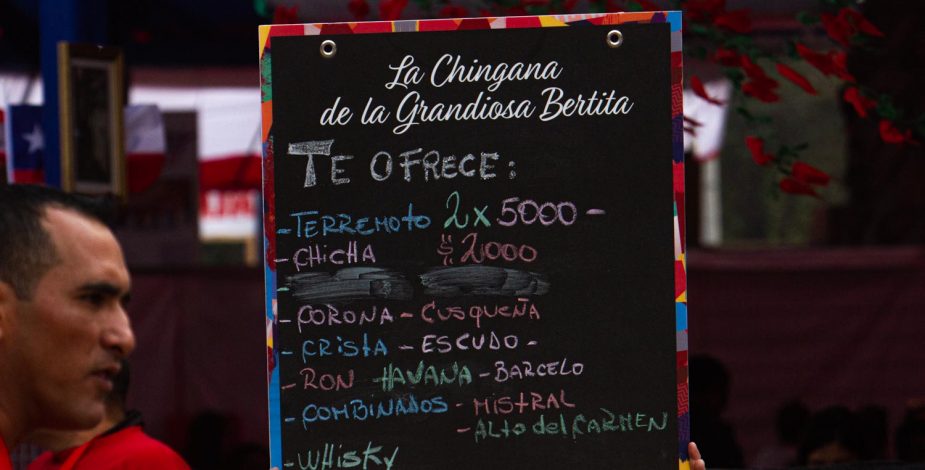 La Chingana
de la Grandiosa Bertita
TE OFRECE:
- TERREMOTO 2x 5000 -
- CHICHA $ 2000
- CORONA - CUSQUEÑA
- CRISTA - ESCUDO -
- RON HAVANA - BARCELO
- COMBINADOS - MISTRAL
- ALTO del CARMEN
- WHISKY